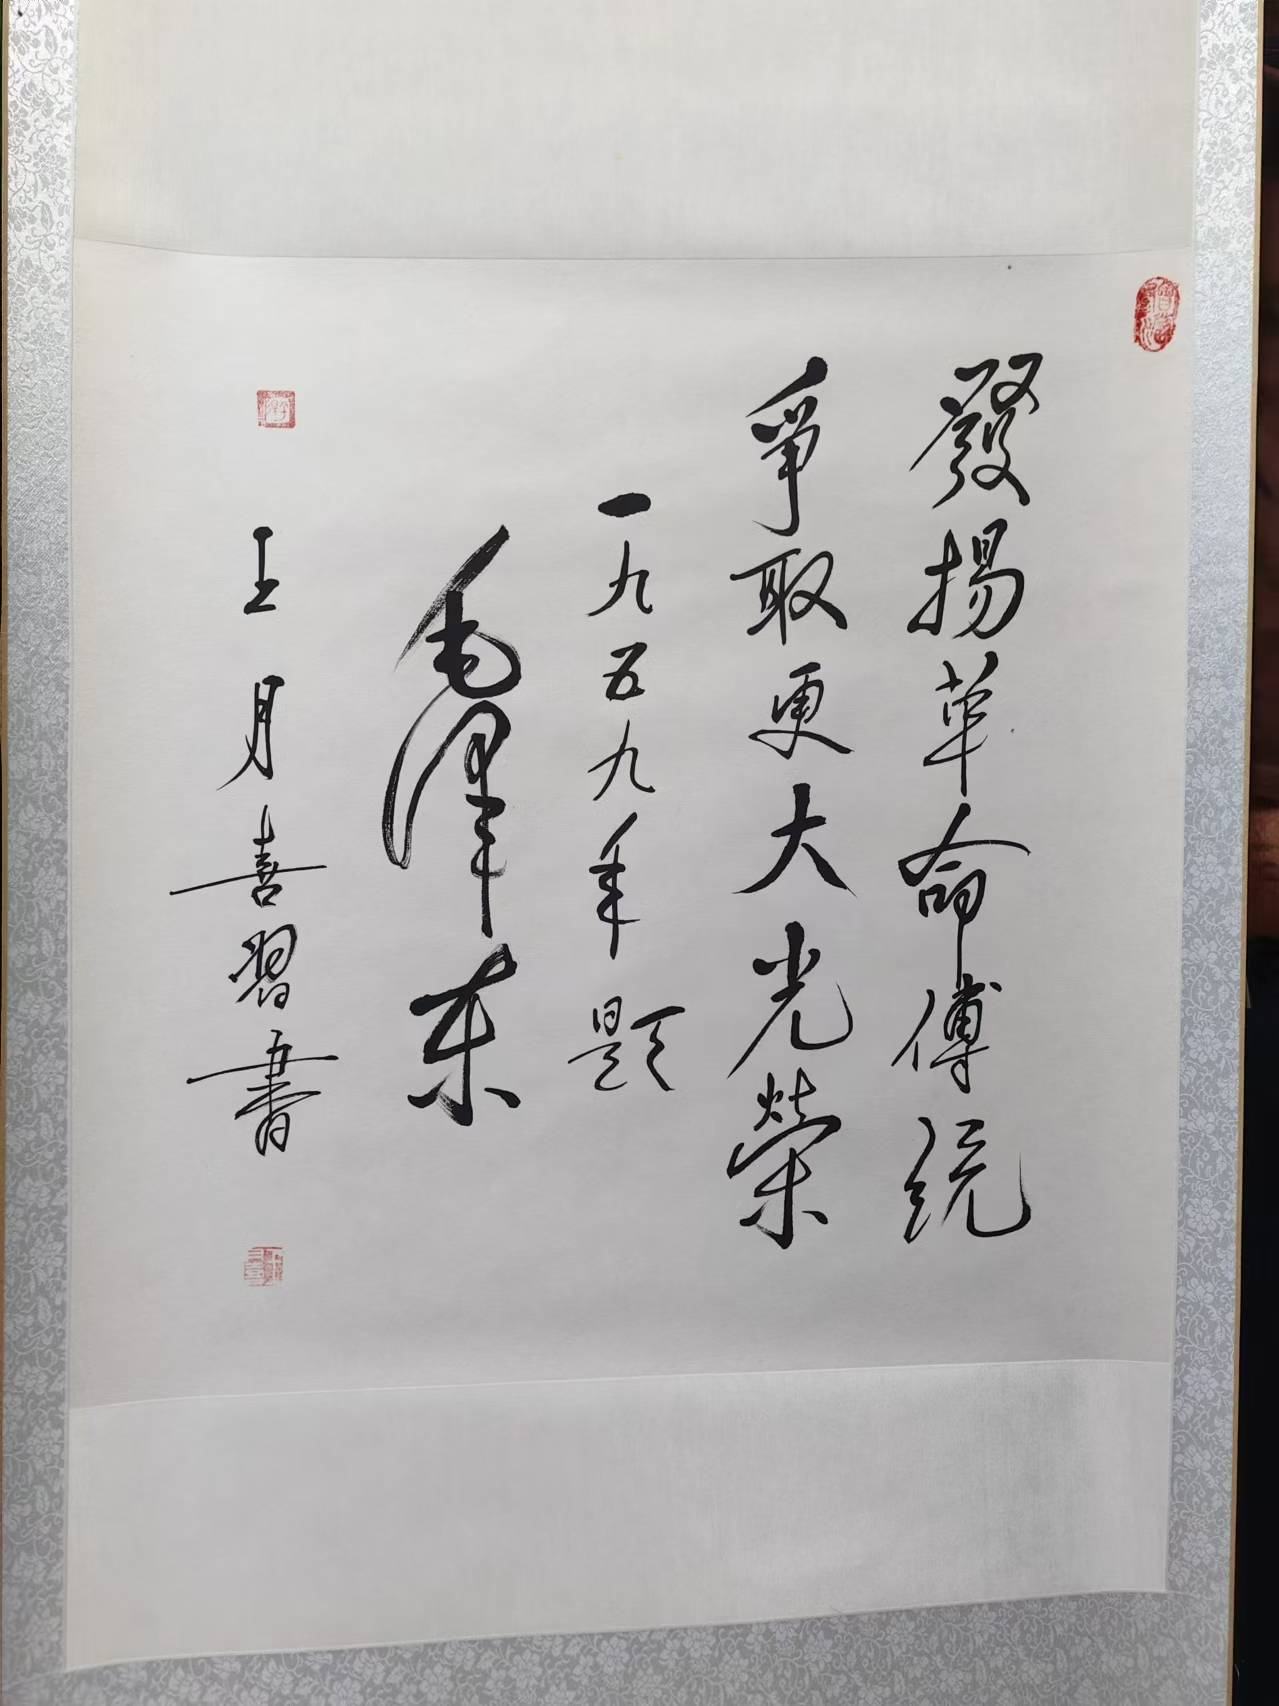 發揚革命傳統
爭取更大光榮
一九五九年題
毛澤东
王月喜習書